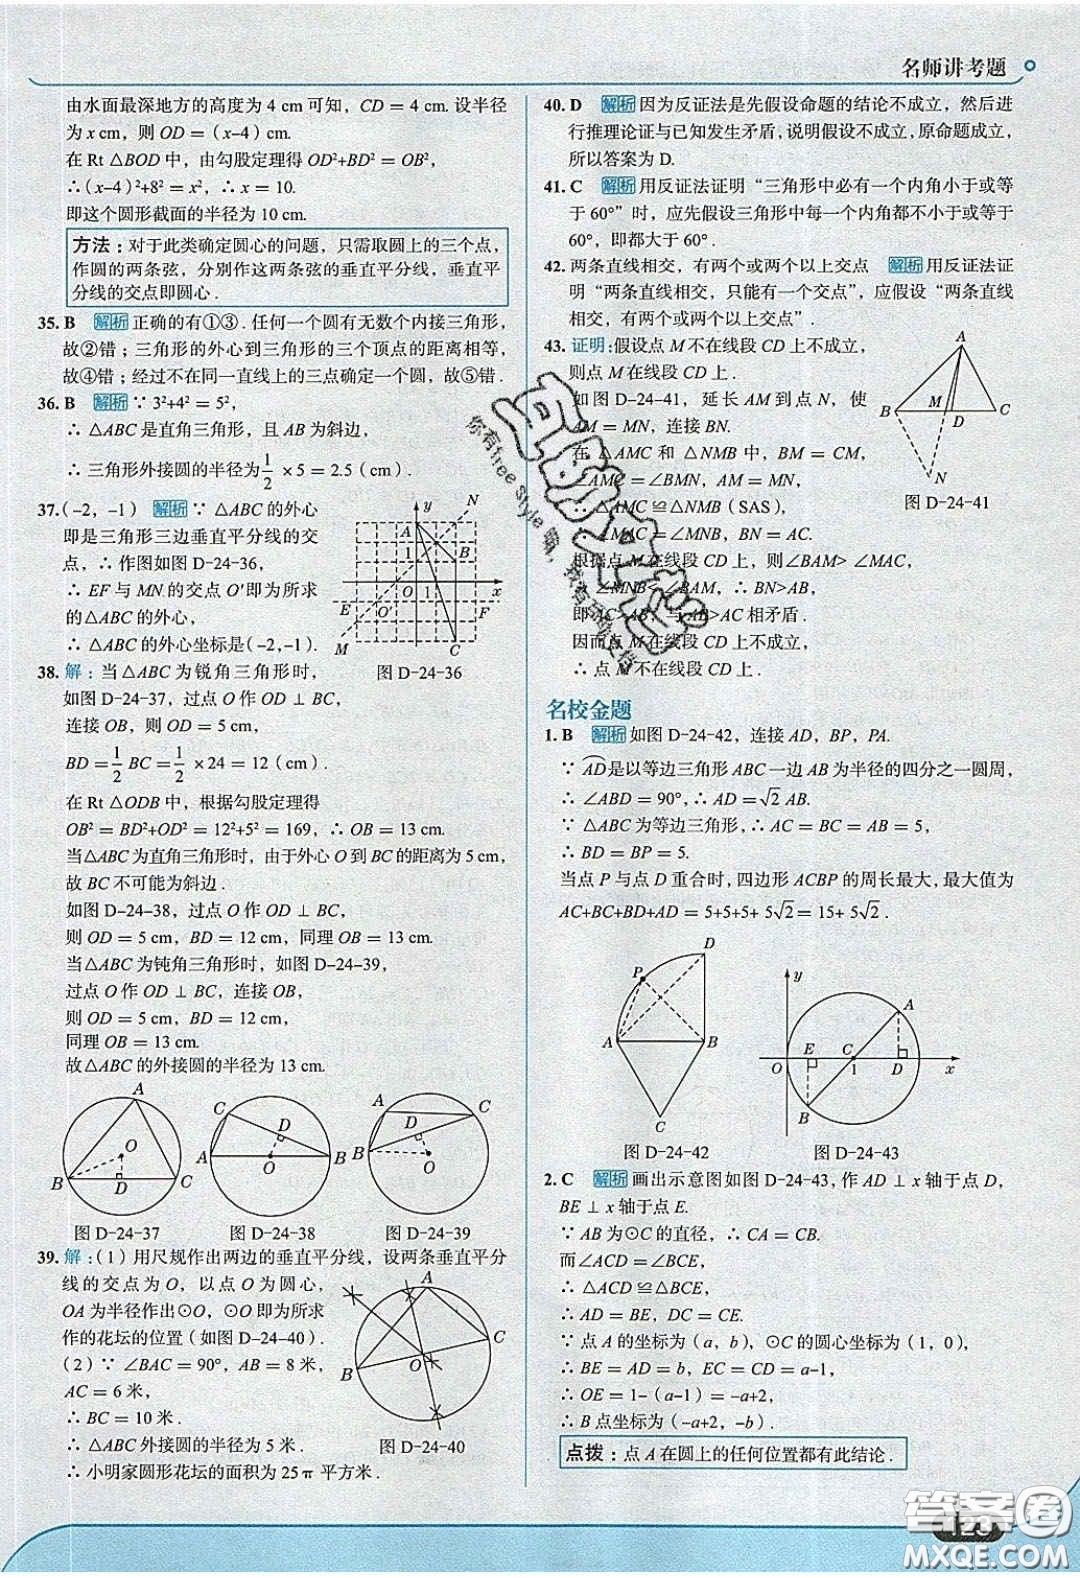 名师讲考题
由水面最深地方的高度为 4 cm 可知，CD = 4 cm. 设半径
为 x cm，则 OD =（x–4）cm.
在 Rt △BOD 中，由勾股定理得 OD²+BD² = OB²，
∴（x–4）²+8² = x²，∴ x = 10.
即这个圆形截面的半径为 10 cm.
方法：对于此类确定圆心的问题，只需取圆上的三个点，
作圆的两条弦，分别作这两条弦的垂直平分线，垂直平
分线的交点即圆心．
35. B 解析 正确的有①③．任何一个圆有无数个内接三角形，
故②错；三角形的外心到三角形的三个顶点的距离相等，
故④错；经过不在同一直线上的三点确定一个圆，故⑤错．
36. B 解析 ∵ 3²+4² = 5²，
∴ △ABC 是直角三角形，且 AB 为斜边，
∴ 三角形外接圆的半径为 1/2 ×5 = 2.5（cm）.
37.（–2，–1） 解析 ∵ △ABC 的外心
即是三角形三边垂直平分线的交
点，∴ 作图如图 D-24-36，
∴ EF 与 MN 的交点 O′即为所求
的△ABC 的外心，
∴ △ABC 的外心坐标是（–2，–1）.
y N A 1 B E O′ O 1 F x M C
图 D-24-36
38. 解：当△ABC 为锐角三角形时，
如图 D-24-37，过点 O 作 OD ⊥ BC，
连接 OB，则 OD = 5 cm，
BD = 1/2 BC = 1/2 ×24 = 12（cm）.
在 Rt △ODB 中，根据勾股定理得
OB² = BD²+OD² = 12²+5² = 169，∴ OB = 13 cm.
当△ABC 为直角三角形时，由于外心 O 到 BC 的距离为 5 cm，
故 BC 不可能为斜边．
如图 D-24-38，过点 O 作 OD ⊥ BC，
则 OD = 5 cm，BD = 12 cm，同理 OB = 13 cm.
当△ABC 为钝角三角形时，如图 D-24-39，
过点 O 作 OD ⊥ BC，连接 OB，
则 OD = 5 cm，BD = 12 cm，
同理 OB = 13 cm.
故△ABC 的外接圆的半径为 13 cm.
A O B D C
C D A O B
A C D B O
图 D-24-37 图 D-24-38 图 D-24-39
39. 解：（1）用尺规作出两边的垂直平分线，设两条垂直平分
线的交点为 O，以点 O 为圆心，
OA 为半径作出⊙O，⊙O 即为所求
作的花坛的位置（如图 D-24-40）.
（2）∵ ∠BAC = 90°，AB = 8 米，
AC = 6 米，
∴ BC = 10 米．
∴ △ABC 外接圆的半径为 5 米．
∴ 小明家圆形花坛的面积为 25π 平方米．
A C O B
图 D-24-40
40. D 解析 因为反证法是先假设命题的结论不成立，然后进
行推理论证与已知发生矛盾，说明假设不成立，原命题成立，
所以答案为 D.
41. C 解析 用反证法证明“三角形中必有一个内角小于或等
于 60°”时，应先假设三角形中每一个内角都不小于或等于
60°，即都大于 60°．
42. 两条直线相交，有两个或两个以上交点 解析 用反证法证
明“两条直线相交，只能有一个交点”，应假设“两条直线
相交，有两个或两个以上交点”．
43. 证明：假设点 M 不在线段 CD 上不成立，
则点 M 在线段 CD 上．
如图 D-24-41，延长 AM 到点 N，使
AM = MN，连接 BN.
在 △AMC 和 △NMB 中，BM = CM，
∠AMC = ∠BMN，AM = MN，
∴ △AMC ≌△NMB（SAS），
∴ ∠MAC = ∠MNB，BN = AC.
根据点 M 在线段 CD 上，则 ∠BAM> ∠MAC，
∴ ∠MNB< ∠BAM，∴ BN>AB，
即 AC>AB，与 AB>AC 相矛盾．
因而点 M 在线段 CD 上不成立，
∴ 点 M 不在线段 CD 上．
A B M D C N
图 D-24-41
名校金题
1. B 解析 如图 D-24-42，连接 AD，BP，PA.
∵ AD是以等边三角形 ABC 一边 AB 为半径的四分之一圆周，
∴ ∠ABD = 90°，∴ AD =√2 AB.
∵ △ABC 为等边三角形，∴ AC = BC = AB = 5，
∴ BD = BP = 5.
当点 P 与点 D 重合时，四边形 ACBP 的周长最大，最大值为
AC+BC+BD+AD = 5+5+5+ 5√2 = 15+ 5√2 .
D P A B C
y A O E C 1 D x B
图 D-24-42 图 D-24-43
2. C 解析 画出示意图如图 D-24-43，作 AD ⊥ x 轴于点 D，
BE ⊥ x 轴于点 E.
∵ AB 为⊙C 的直径，∴ CA = CB.
而∠ACD = ∠BCE，
∴ △ACD ≌△BCE，
∴ AD = BE，DC = CE.
∵ 点 A 的坐标为（a，b），⊙C 的圆心坐标为（1，0），
∴ BE = AD = b，EC = CD = a–1，
∴ OE = 1–（a–1）= –a+2，
∴ B 点坐标为（–a+2，–b）.
点拨：点 A 在圆上的任何位置都有此结论．
123
答案圈
MXQE.COM